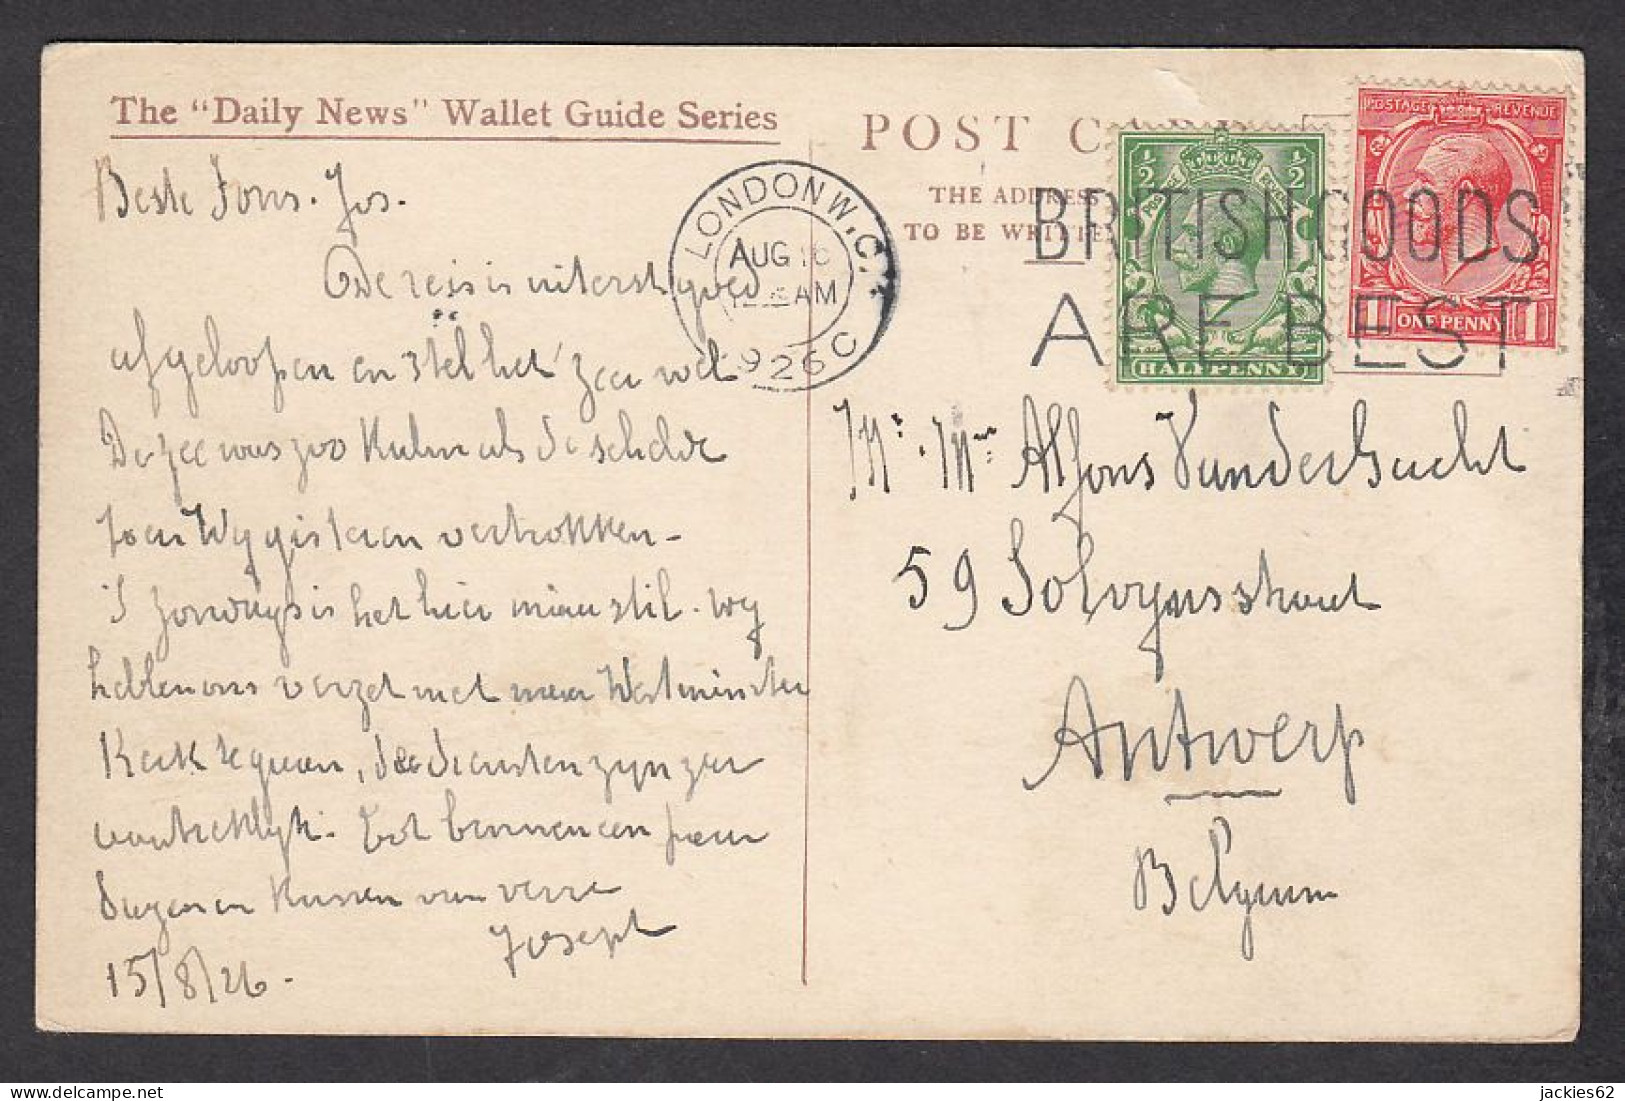 The "Daily News" Wallet Guide Series
POST C
THE ADDRESS
TO BE WRITTEN
LONDON W.C.1
AUG 16
12 AM
1926
C
BRITISH GOODS
ARE BEST
½ ½
HALFPENNY
POSTAGE REVENUE
1 ONE PENNY 1
Beste Fons. Jos.
De reis is uiterst goed
afgeloopen en stel het zeer wel
De zee was zoo kalm als de schelde
toen wy gisteren vertrokken -
's zondags is het hier maar stil. wy
hebben ons verzet met naar Westminster
Kerk te gaan, de diensten zyn zeer
aantreklyk. Tot binnen een paar
dagen en kussen van verre
Joseph
15/8/26.
Mr. Mme Alfons Vanderbucht
59 Solvynsstraat
Antwerp
Belgium
jackies62